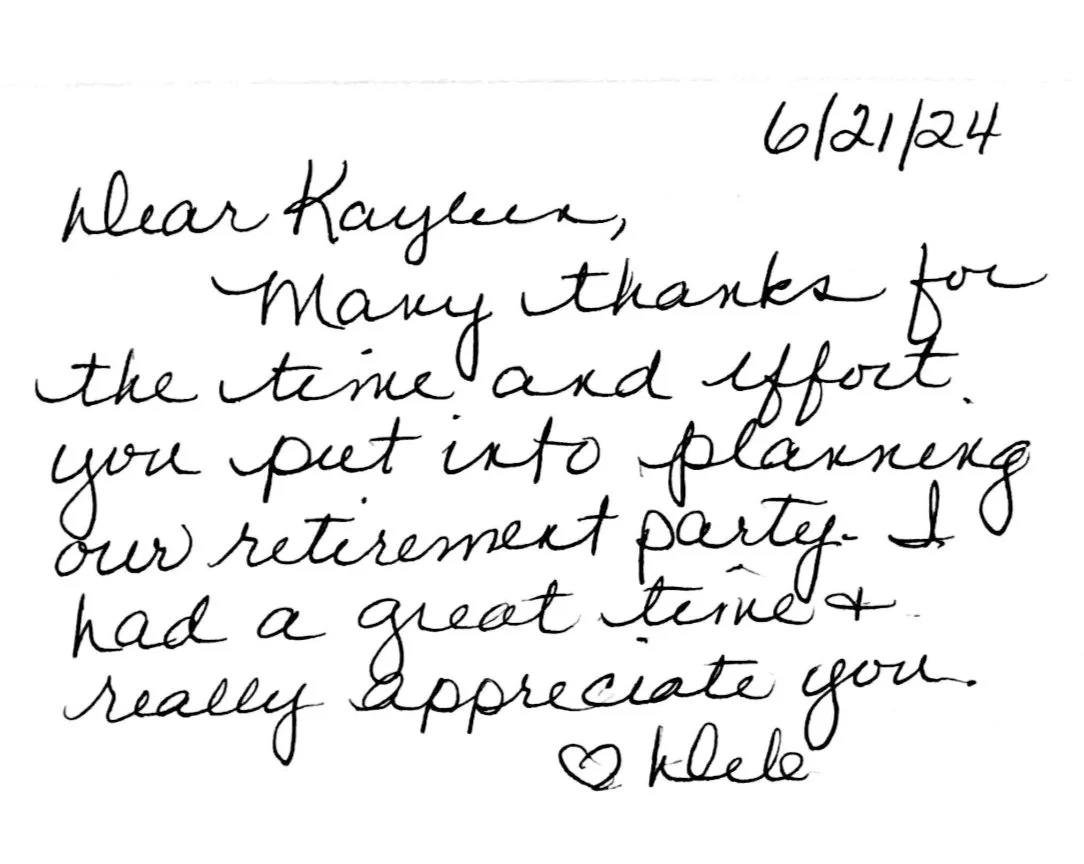 6/21/24
Dear Kayleen,
Many thanks for
the time and effort
you put into planning
our retirement party. I
had a great time &
really appreciate you.
♡ Deb